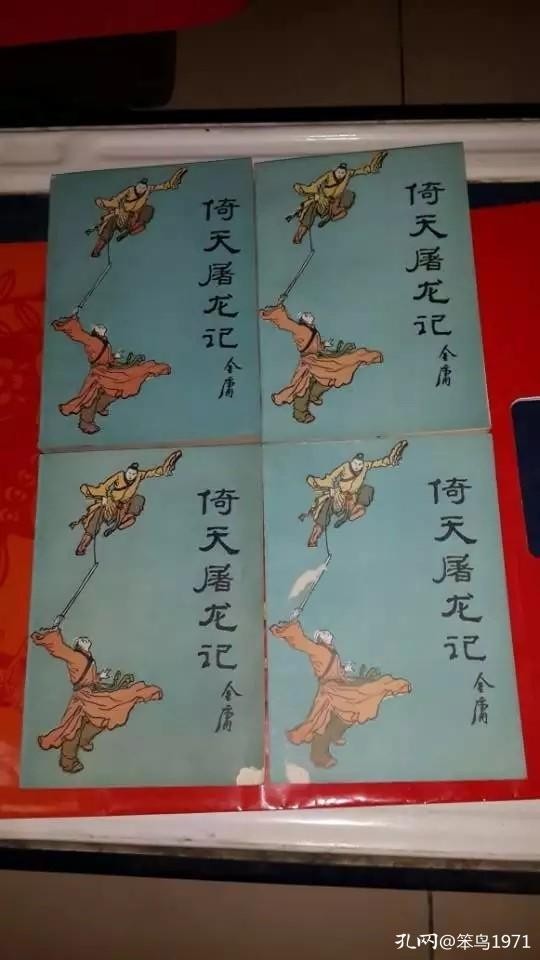 倚天屠龙记
金庸
倚天屠龙记
金庸
倚天屠龙记
金庸
倚天屠龙记
金庸
孔网@笨鸟1971